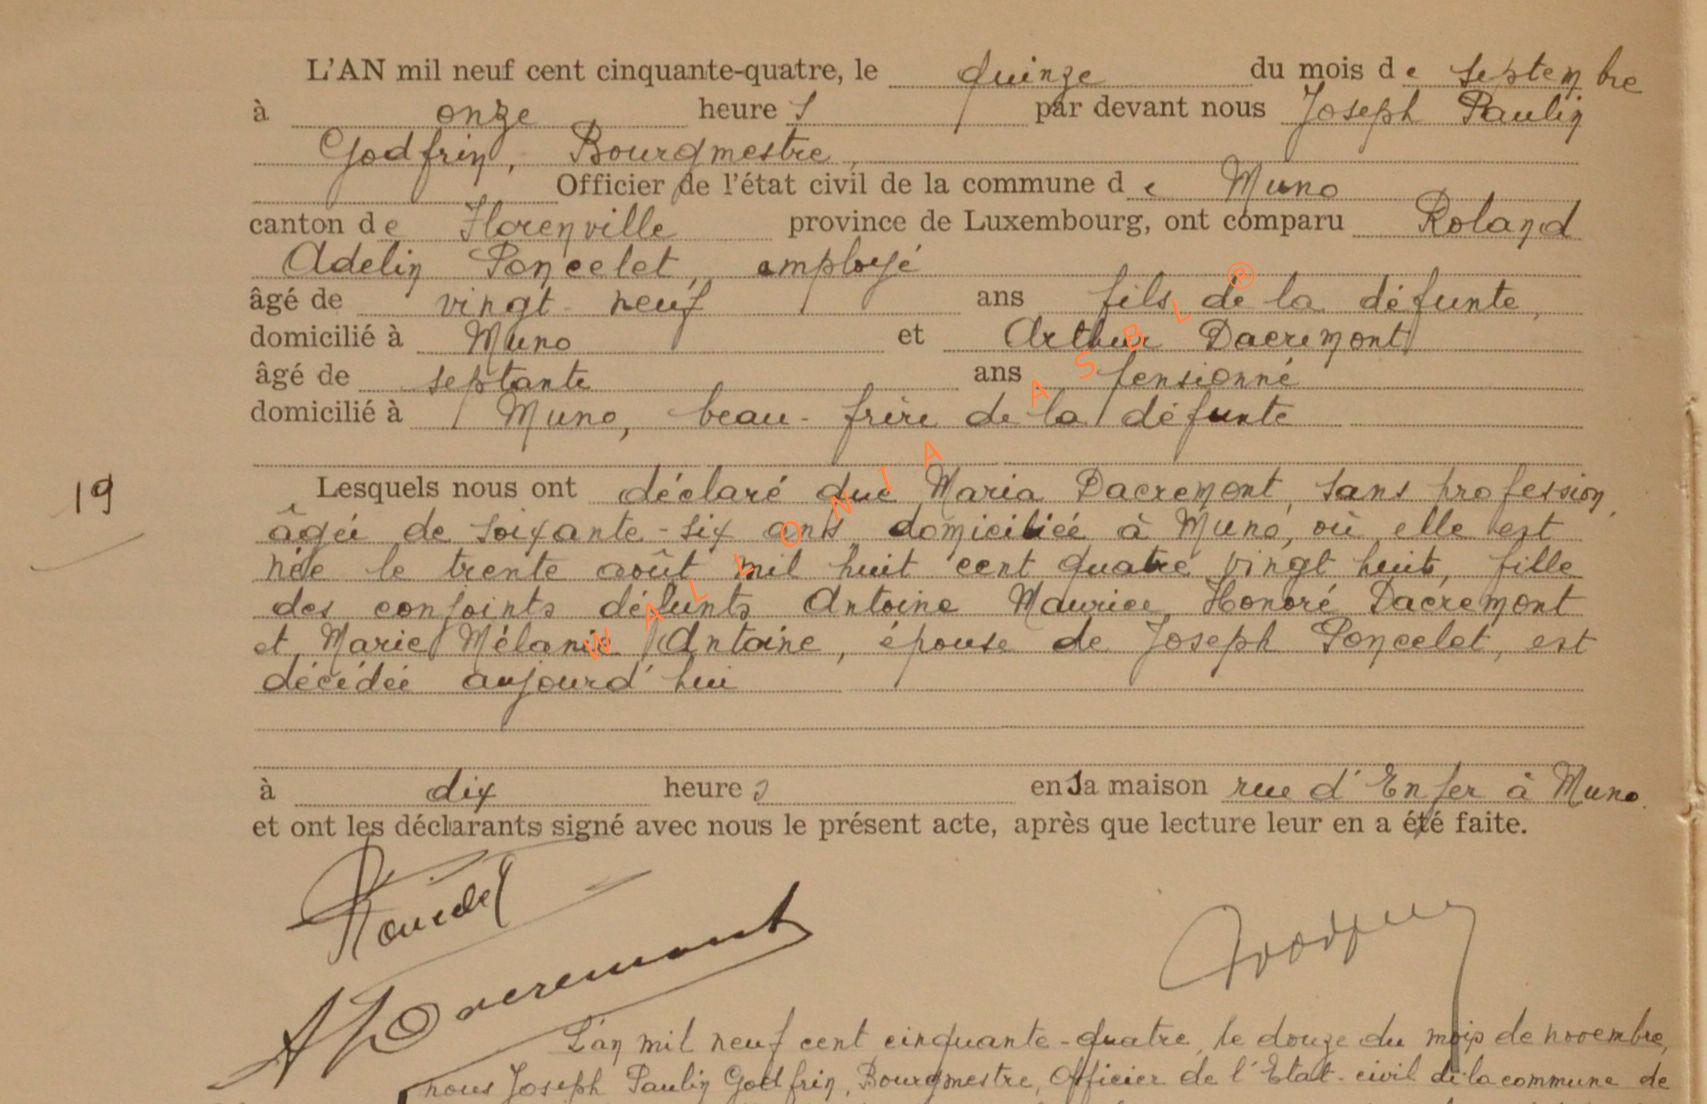 L'AN mil neuf cent cinquante-quatre, le quinze du mois de septembre
à onze heures par devant nous Joseph Paulin
Godfrin, Bourgmestre,
Officier de l'état civil de la commune de Muno
canton de Florenville province de Luxembourg, ont comparu Roland
Adelin Poncelet, employé
âgé de vingt-neuf ans fils de la défunte,
domicilié à Muno et Arthur Dacremont
âgé de septante ans pensionné
domicilié à Muno, beau-frère de la défunte
19
Lesquels nous ont déclaré que Maria Dacremont, sans profession,
âgée de soixante-six ans domiciliée à Muno, où elle est
née le trente août mil huit cent quatre vingt huit, fille
des conjoints défunts Antoine Maurice Honoré Dacremont
et Marie Mélanie Antoine, épouse de Joseph Poncelet, est
décédée aujourd'hui
à dix heures en sa maison rue d'Enfer à Muno.
et ont les déclarants signé avec nous le présent acte, après que lecture leur en a été faite.
Poncelet
A Dacremont
Godfrin
L'an mil neuf cent cinquante-quatre, le douze du mois de novembre,
nous Joseph Paulin Godfrin, Bourgmestre, Officier de l'Etat-civil de la commune de
WALLONIA ASBL ®